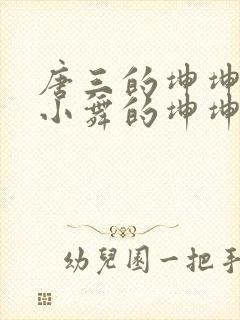 唐三的坤坤
小舞的坤坤
幼兒園一把手